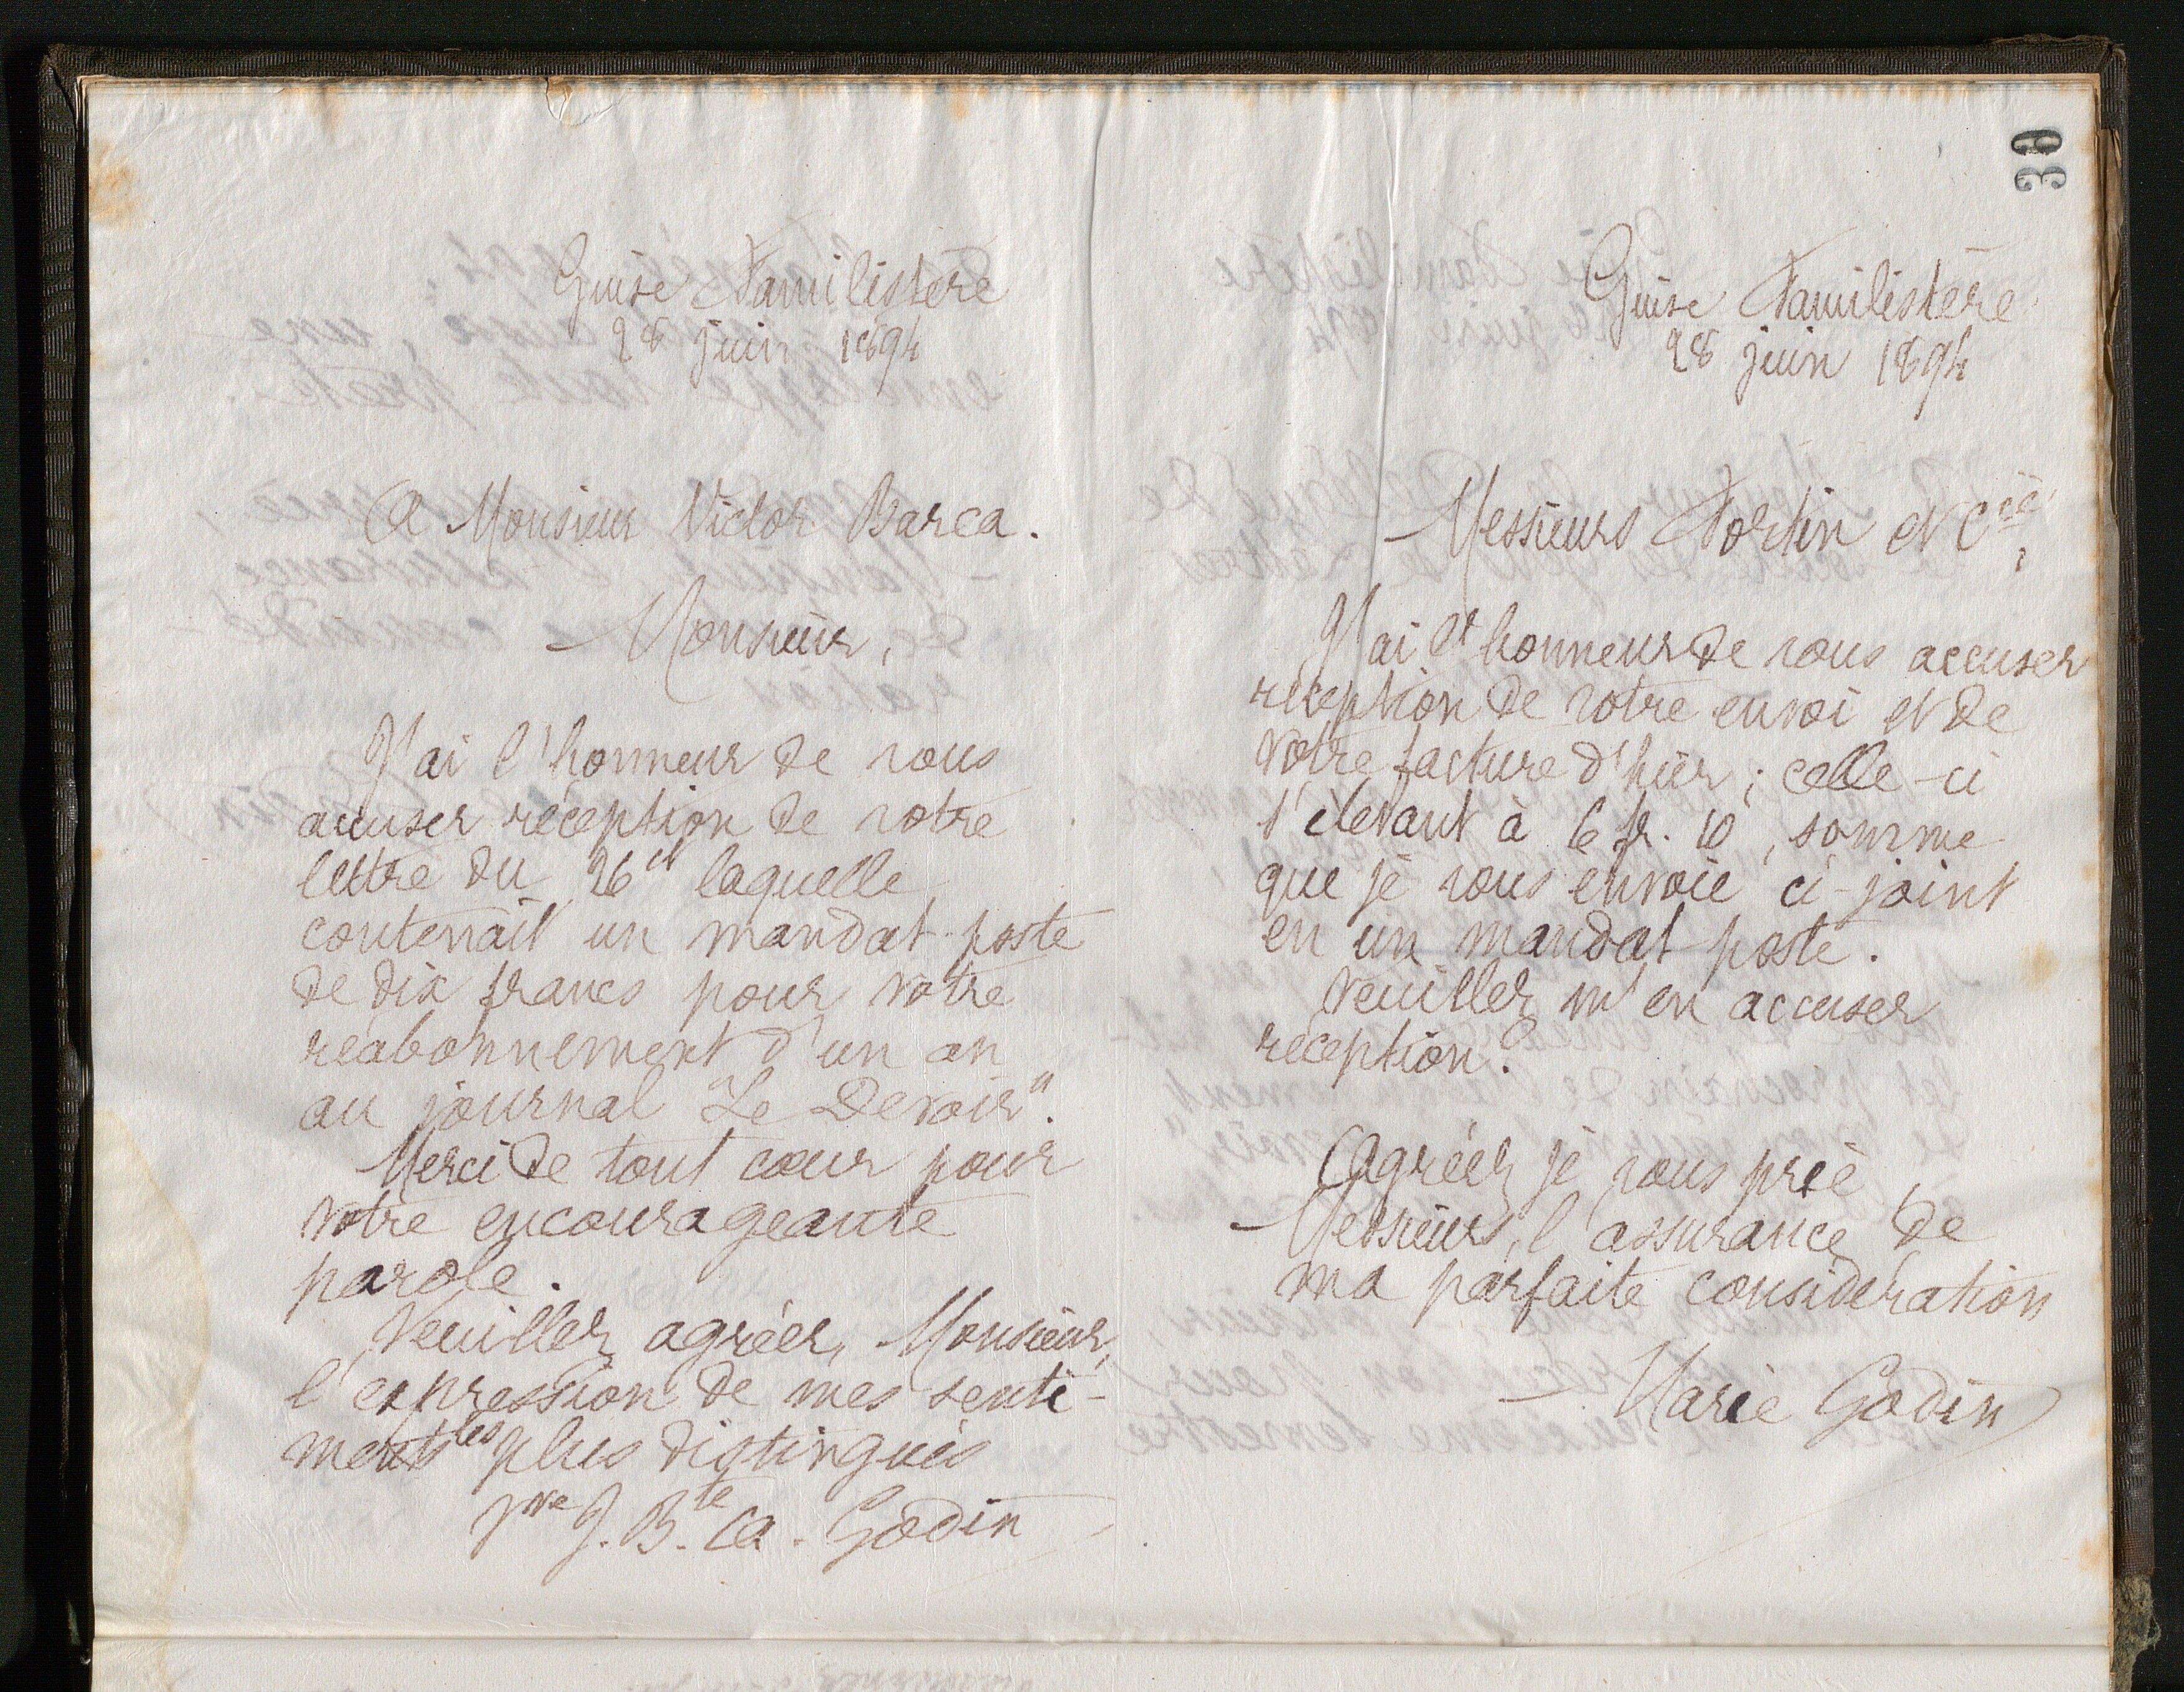 Guise Familistère
28 juin 1894
A Monsieur Victor Barca.
Monsieur,
J'ai l'honneur de vous
accuser réception de votre
lettre du 26 ct laquelle
contenait un mandat-poste
de dix francs pour votre
réabonnement d'un an
au journal "Le Devoir".
Merci de tout cœur pour
votre encourageante
parole.
Veuillez agréer, Monsieur,
l'expression de mes senti-
ments les plus distingués
Vve J. Bte A. Godin
30
Guise Familistère
28 juin 1894
Messieurs Fortin et Cie,
J'ai l'honneur de vous accuser
réception de votre envoi et de
votre facture d'hier; celle-ci
s'élevant à 6 fr. 10, somme
que je vous envoie ci-joint
en un mandat poste.
Veuillez m'en accuser
réception.
Agréez je vous prie
Messieurs, l'assurance de
ma parfaite considération
Marie Godin